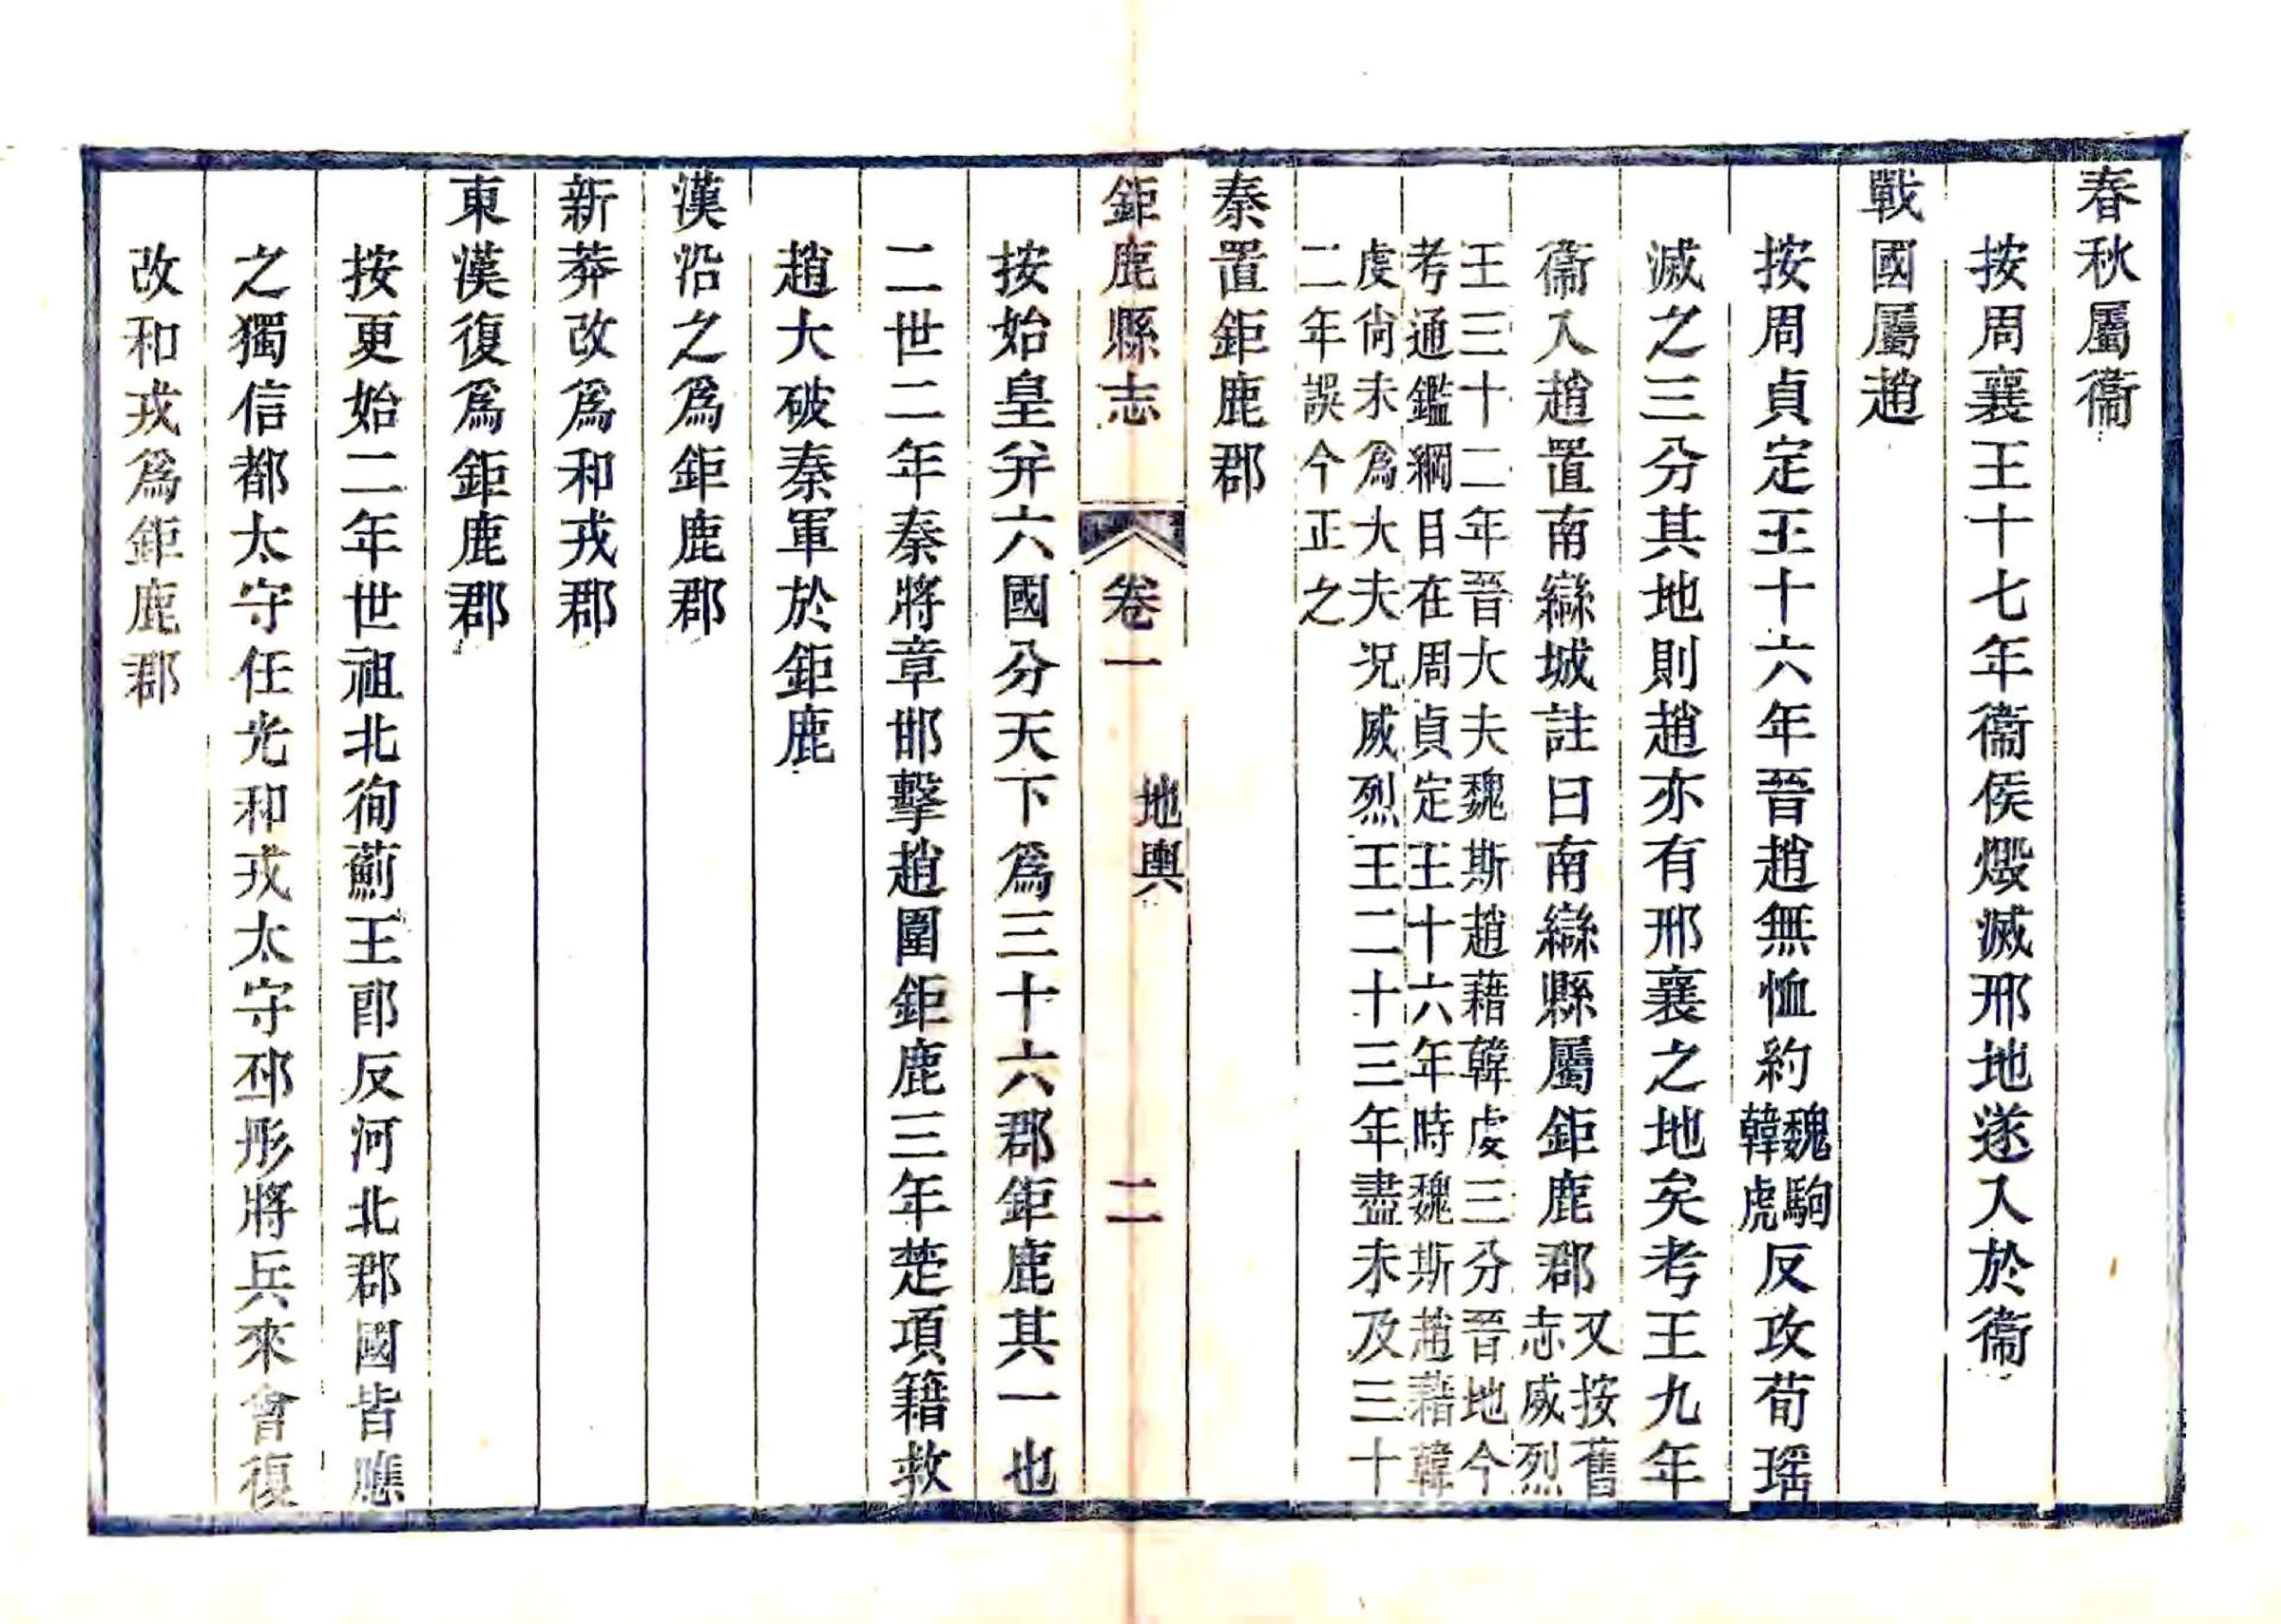 春秋屬衞
按周襄王十七年衞侯燬滅邢地遂入於衞
戰國屬趙
按周貞定王十六年晉趙無恤約魏駒韓虎反攻荀瑶
滅之三分其地則趙亦有邢襄之地矣考王九年
衞入趙置南䜌城註曰南䜌縣屬鉅鹿郡又按舊志威烈
王三十二年晉大夫魏斯趙藉韓虔三分晉地今
考通鑑綱目在周貞定王十六年時魏斯趙藉韓
虔尙未爲大夫况威烈王二十三年盡未及三十
二年誤今正之
秦置鉅鹿郡
鉅鹿縣志 卷一 地輿 二
按始皇幷六國分天下爲三十六郡鉅鹿其一也
二世二年秦將章邯擊趙圍鉅鹿三年楚項籍救
趙大破秦軍於鉅鹿
漢沿之爲鉅鹿郡
新莽改爲和戎郡
東漢復爲鉅鹿郡
按更始二年世祖北徇薊王郎反河北郡國皆應
之獨信都太守任光和戎太守邳彤將兵來會復
改和戎爲鉅鹿郡